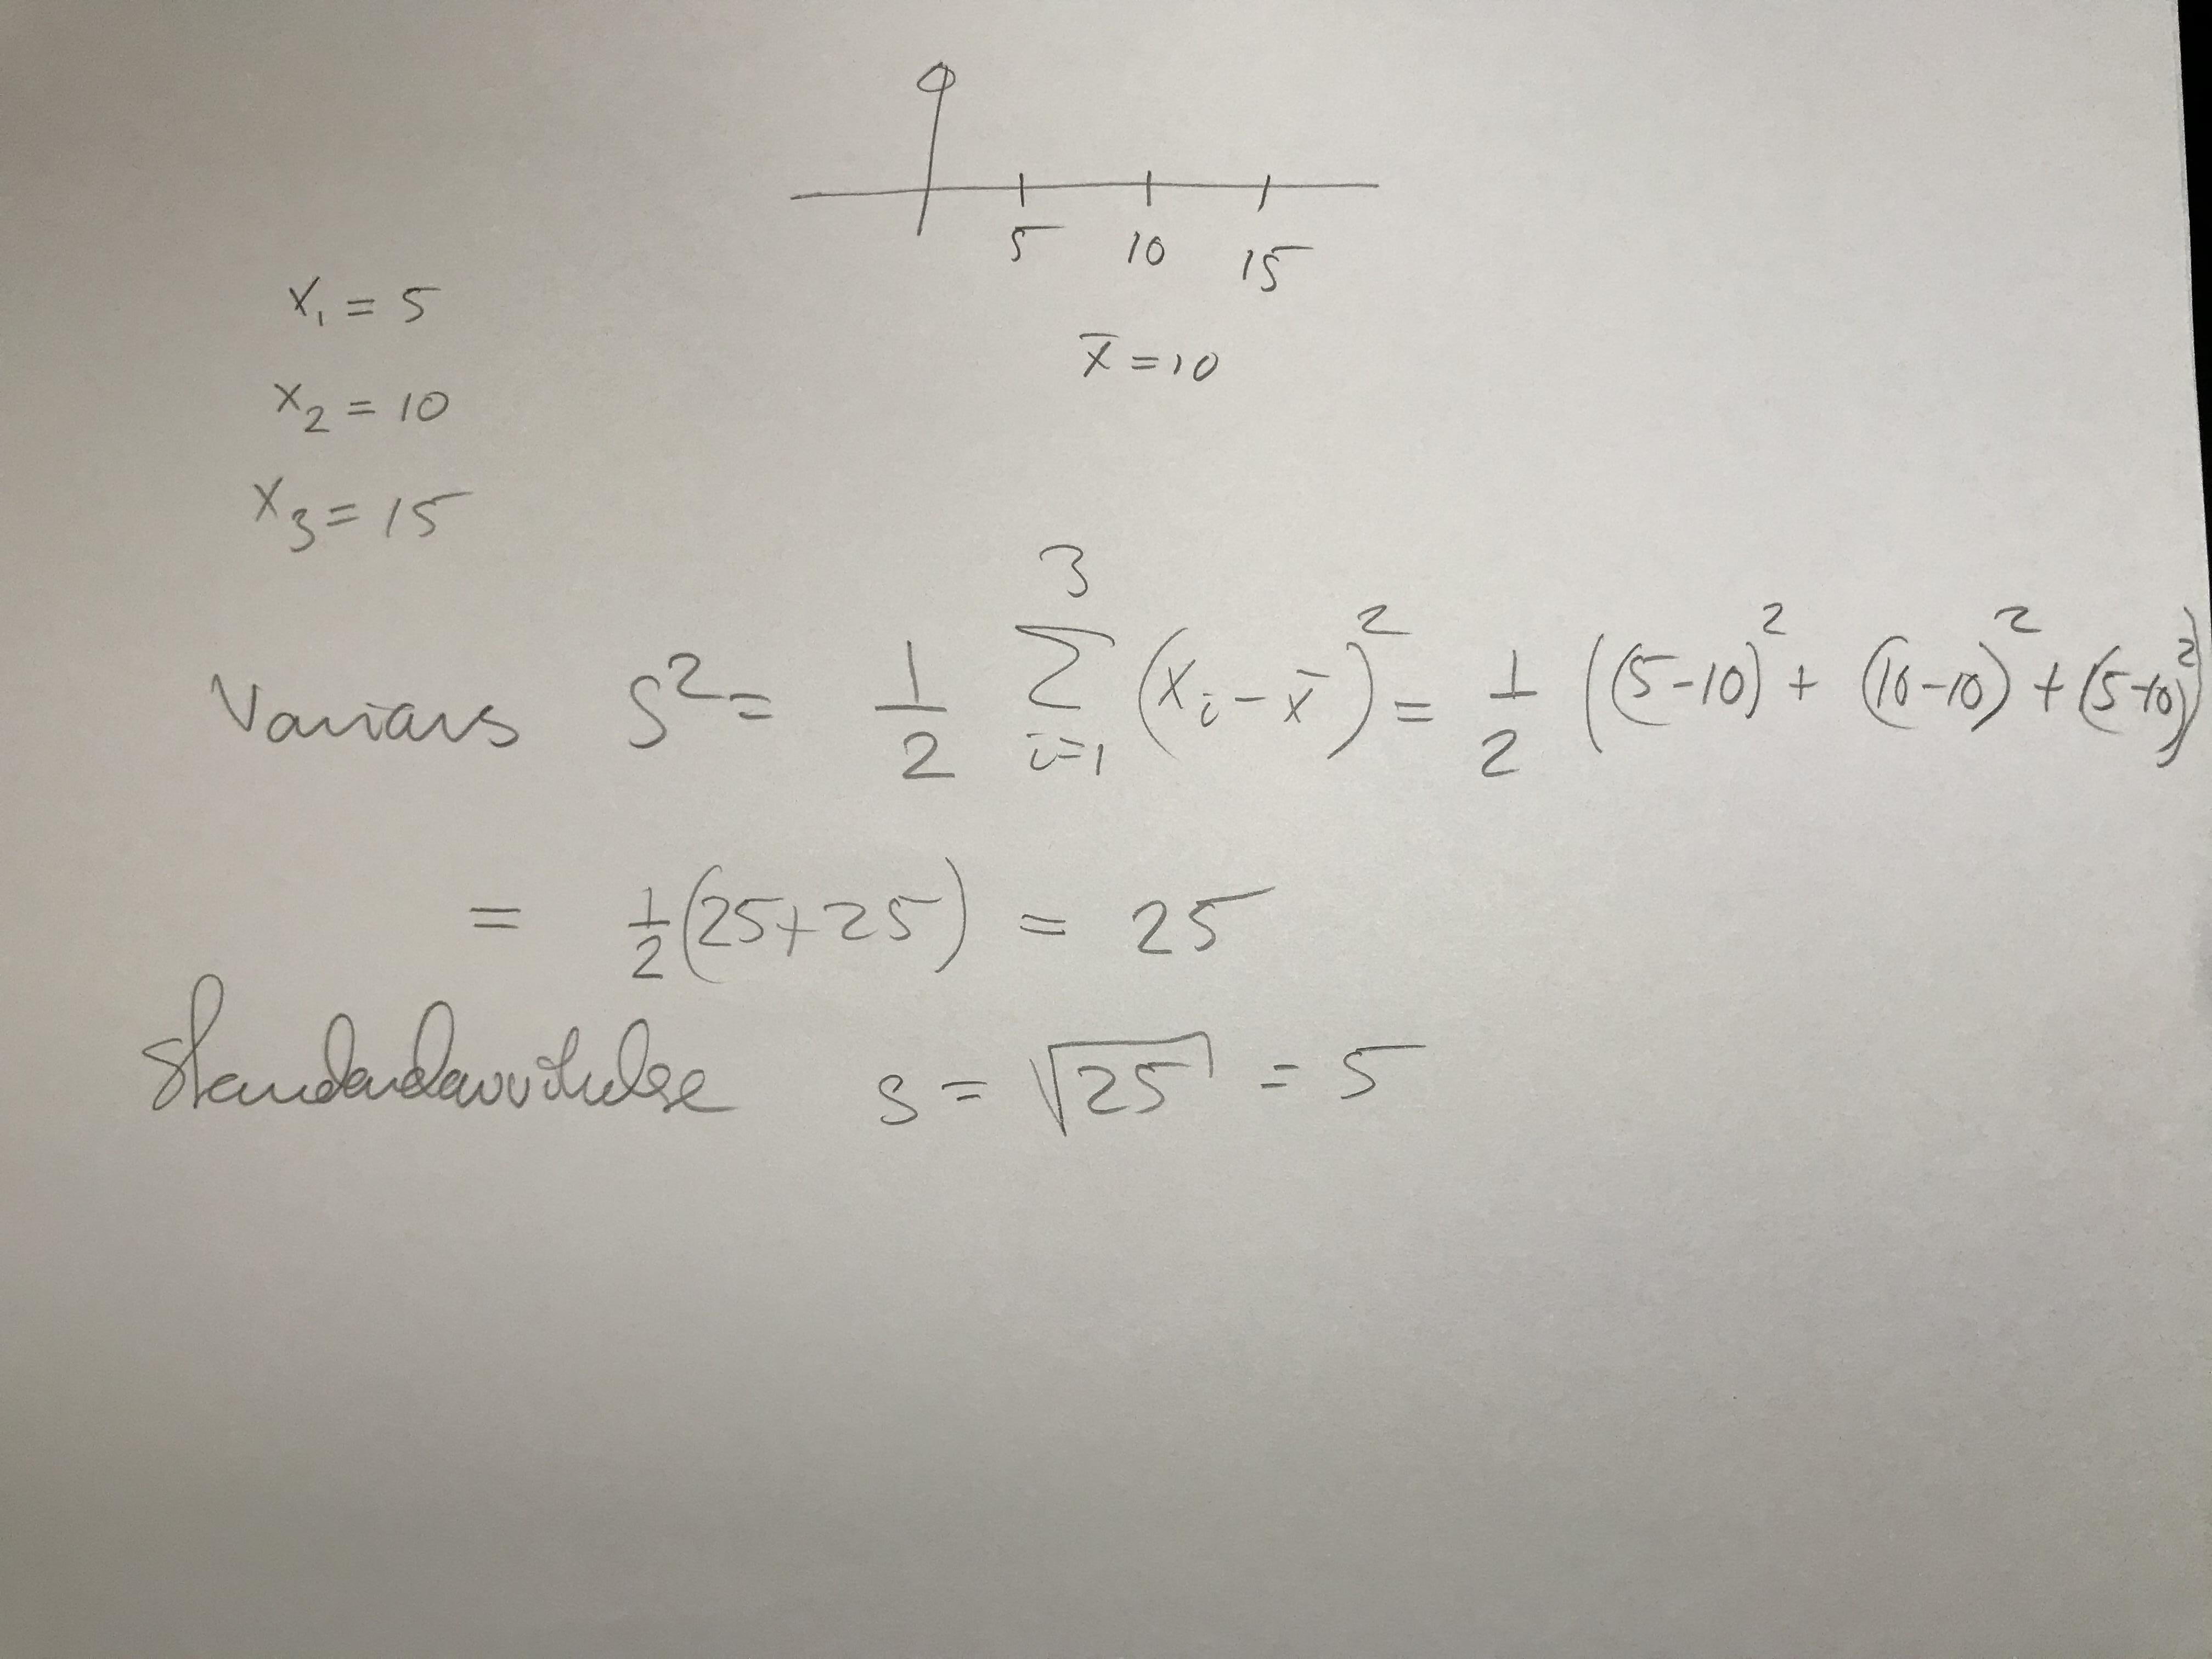 5 10 15
x̄ = 10
x₁ = 5
x₂ = 10
x₃ = 15
Varians S² = 1/2 3 Σ i=1 (xᵢ - x̄)² = 1/2 ((5-10)² + (10-10)² + (5-10)²)
= 1/2 (25+25) = 25
Standardavvikelse s = √25 = 5